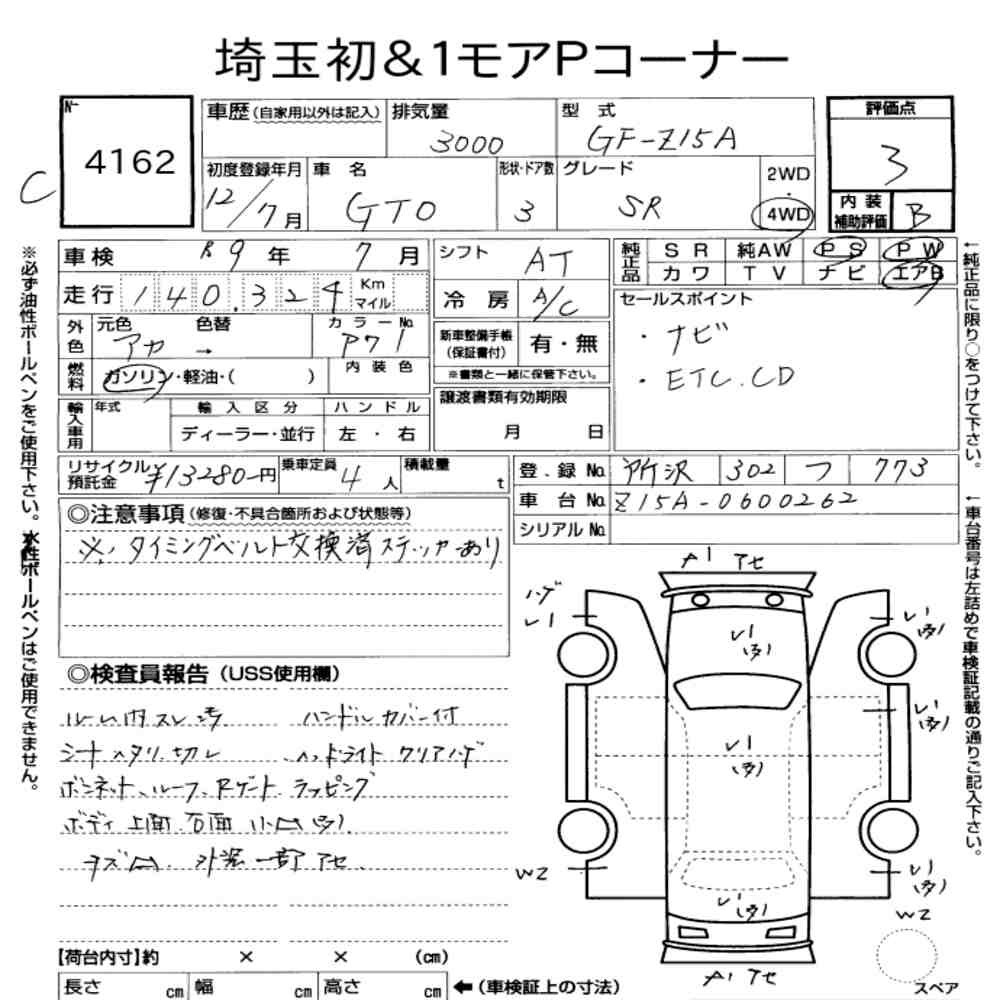 埼玉初&1モアPコーナー
№
4162
C
車歴(自家用以外は記入) 排気量 3000 型式 GF-Z15A 評価点 3
初度登録年月 12/7月 車名 GTO 形状・ドア数 3 グレード SR 2WD・4WD 内装補助評価 B
車検 R9年 7月 シフト AT 純正品 SR 純AW PS PW
カワ TV ナビ エアB
走行 140,324 Km マイル 冷房 A/C セールスポイント
・ナビ
・ETC.CD
外色 元色 アカ → 色替 カラーNo. P71 新車整備手帳(保証書付) 有・無
※書類と一緒に保管下さい。
燃料 ガソリン・軽油・( ) 内装色
輸入車用 年式 輸入区分 ハンドル 譲渡書類有効期限
ディーラー・並行 左・右 月 日
リサイクル預託金 ¥13280-円 乗車定員 4人 積載量 t 登録No. 所沢 302 つ 773
車台No. Z15A-0600262
シリアルNo.
◎注意事項(修復・不具合箇所および状態等)
※、タイミングベルト交換済ステッカーあり
◎検査員報告(USS使用欄)
ルーム内スレ汚 ハンドルカバー付
シートヘタリ、切レ ヘッドライトクリアハゲ
ボンネット、ルーフ、Rゲートラッピング
ボディ上面、右面小凹(多)
キズ凹、外装一部アセ、
A1 アセ
ハゲ
レ1
レ1(多)
レ1(多)
レ1(多)
レ1(多)
W2
レ1(多)
レ1(多)
W2
A1 アセ
スペア
【荷台内寸】約 × × (cm)
長さ cm 幅 cm 高さ cm ←(車検証上の寸法)
※必ず油性ボールペンをご使用下さい。水性ボールペンはご使用できません。
←純正品に限り○をつけて下さい。
←車台番号は左詰めで車検証記載の通りご記入下さい。